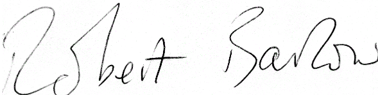 Robert Barlow